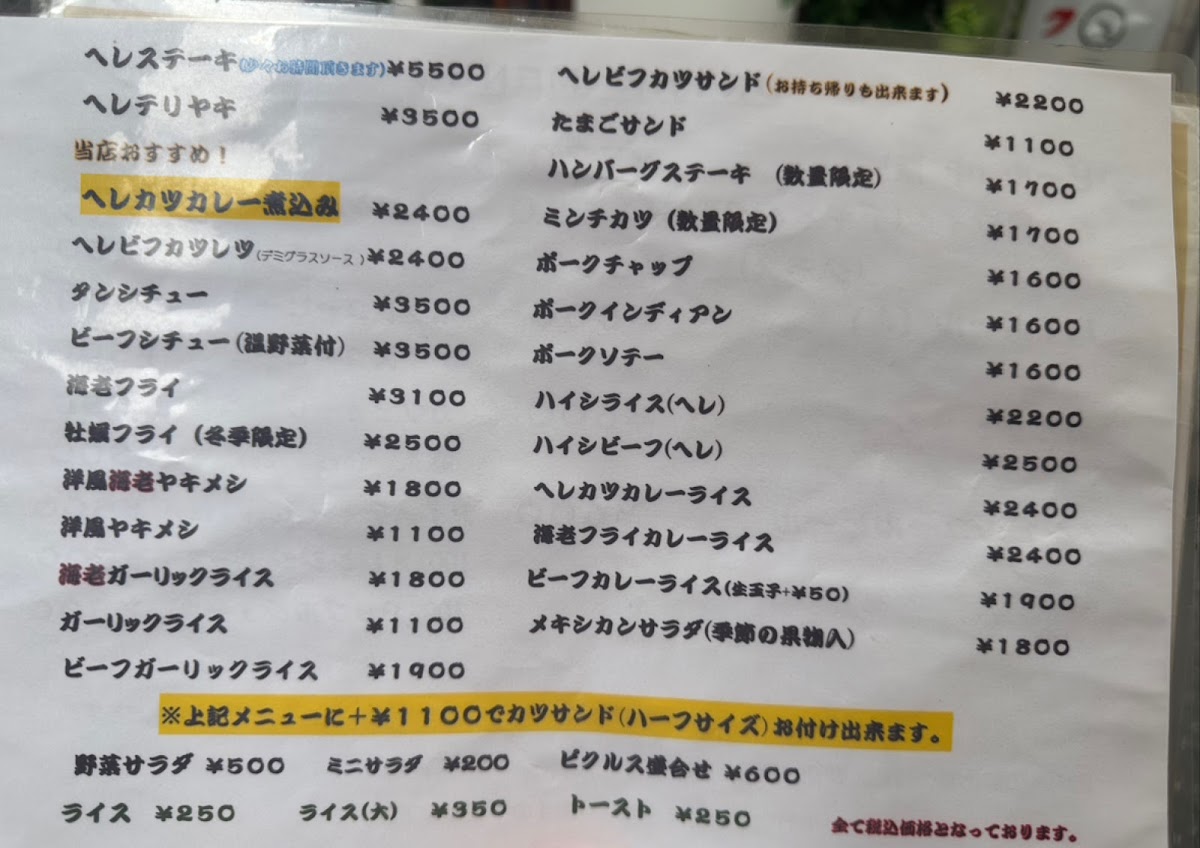 ヘレステーキ(少々お時間頂きます)¥5500
ヘレテリヤキ ¥3500
当店おすすめ!
ヘレカツカレー煮込み ¥2400
ヘレビフカツレツ(デミグラスソース)¥2400
タンシチュー ¥3500
ビーフシチュー(温野菜付) ¥3500
海老フライ ¥3100
牡蠣フライ(冬季限定) ¥2500
洋風海老ヤキメシ ¥1800
洋風ヤキメシ ¥1100
海老ガーリックライス ¥1800
ガーリックライス ¥1100
ビーフガーリックライス ¥1900
ヘレビフカツサンド(お持ち帰りも出来ます) ¥2200
たまごサンド ¥1100
ハンバーグステーキ (数量限定) ¥1700
ミンチカツ(数量限定) ¥1700
ポークチャップ ¥1600
ポークインディアン ¥1600
ポークソテー ¥1600
ハイシライス(ヘレ) ¥2200
ハイシビーフ(ヘレ) ¥2500
ヘレカツカレーライス ¥2400
海老フライカレーライス ¥2400
ビーフカレーライス(生玉子+¥50) ¥1900
メキシカンサラダ(季節の果物入) ¥1800
※上記メニューに+¥1100でカツサンド(ハーフサイズ)お付け出来ます。
野菜サラダ ¥500 ミニサラダ ¥200 ピクルス盛合せ ¥600
ライス ¥250 ライス(大) ¥350 トースト ¥250
全て税込価格となっております。